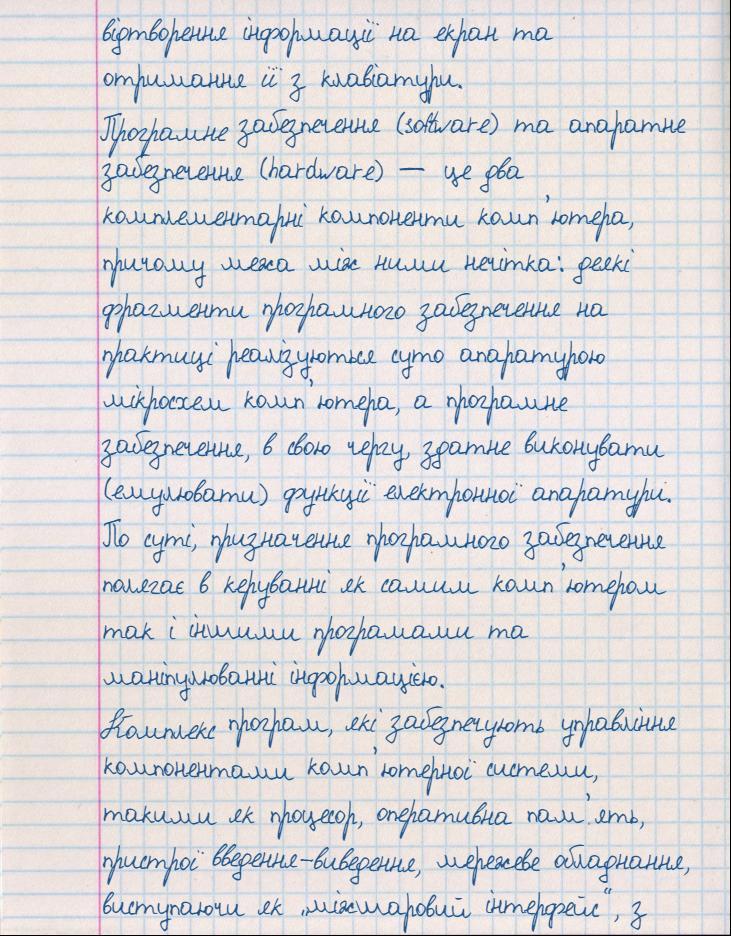 відтворення інформації на екран та
отримання її з клавіатури.
Програмне забезпечення (software) та апаратне
забезпечення (hardware) — це два
комплементарні компоненти комп'ютера,
причому межа між ними нечітка: деякі
фрагменти програмного забезпечення на
практиці реалізуються суто апаратурою
мікросхем комп'ютера, а програмне
забезпечення, в свою чергу, здатне виконувати
(емулювати) функції електронної апаратури.
По суті, призначення програмного забезпечення
полягає в керуванні як самим комп'ютером
так і іншими програмами та
маніпулюванні інформацією.
Комплекс програм, які забезпечують управління
компонентами комп'ютерної системи,
такими як процесор, оперативна пам'ять,
пристрої введення-виведення, мережеве обладнання,
виступаючи як „міжшаровий інтерфейс“, з